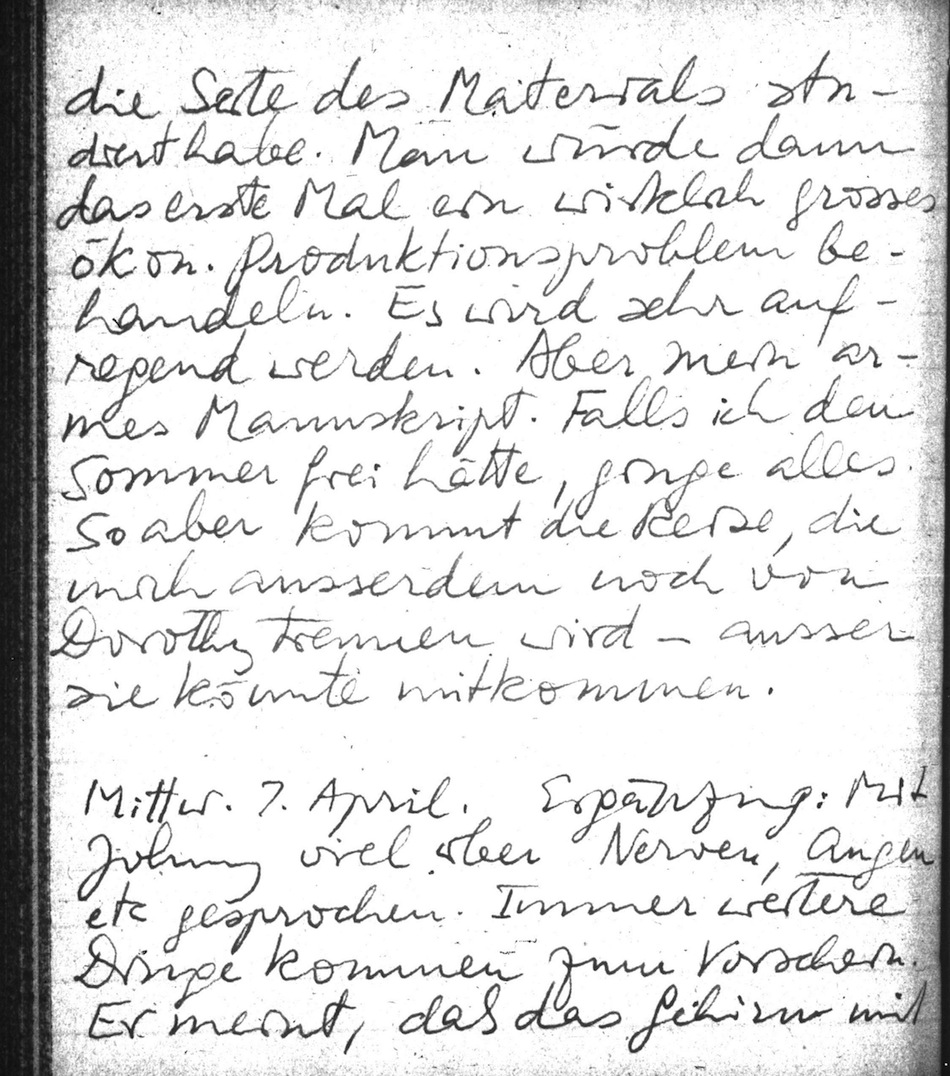 die Seite des Materials stu-
diert habe. Man würde dann
das erste Mal ein wirklich grosses
ökon. Produktionsproblem be-
handeln. Es wird sehr auf-
regend werden. Aber mein ar-
mes Manuskript. Falls ich den
Sommer frei hätte, ginge alles.
So aber kommt die Reise, die
mich ausserdem noch von
Dorothy trennen wird – ausser
sie könnte mitkommen.
Mittw. 7. April. Ergänzung: Mit
Johnny viel über Nerven, Augen
etc gesprochen. Immer weitere
Dinge kommen zum Vorschein.
Er meint, daß das Gehirn mit